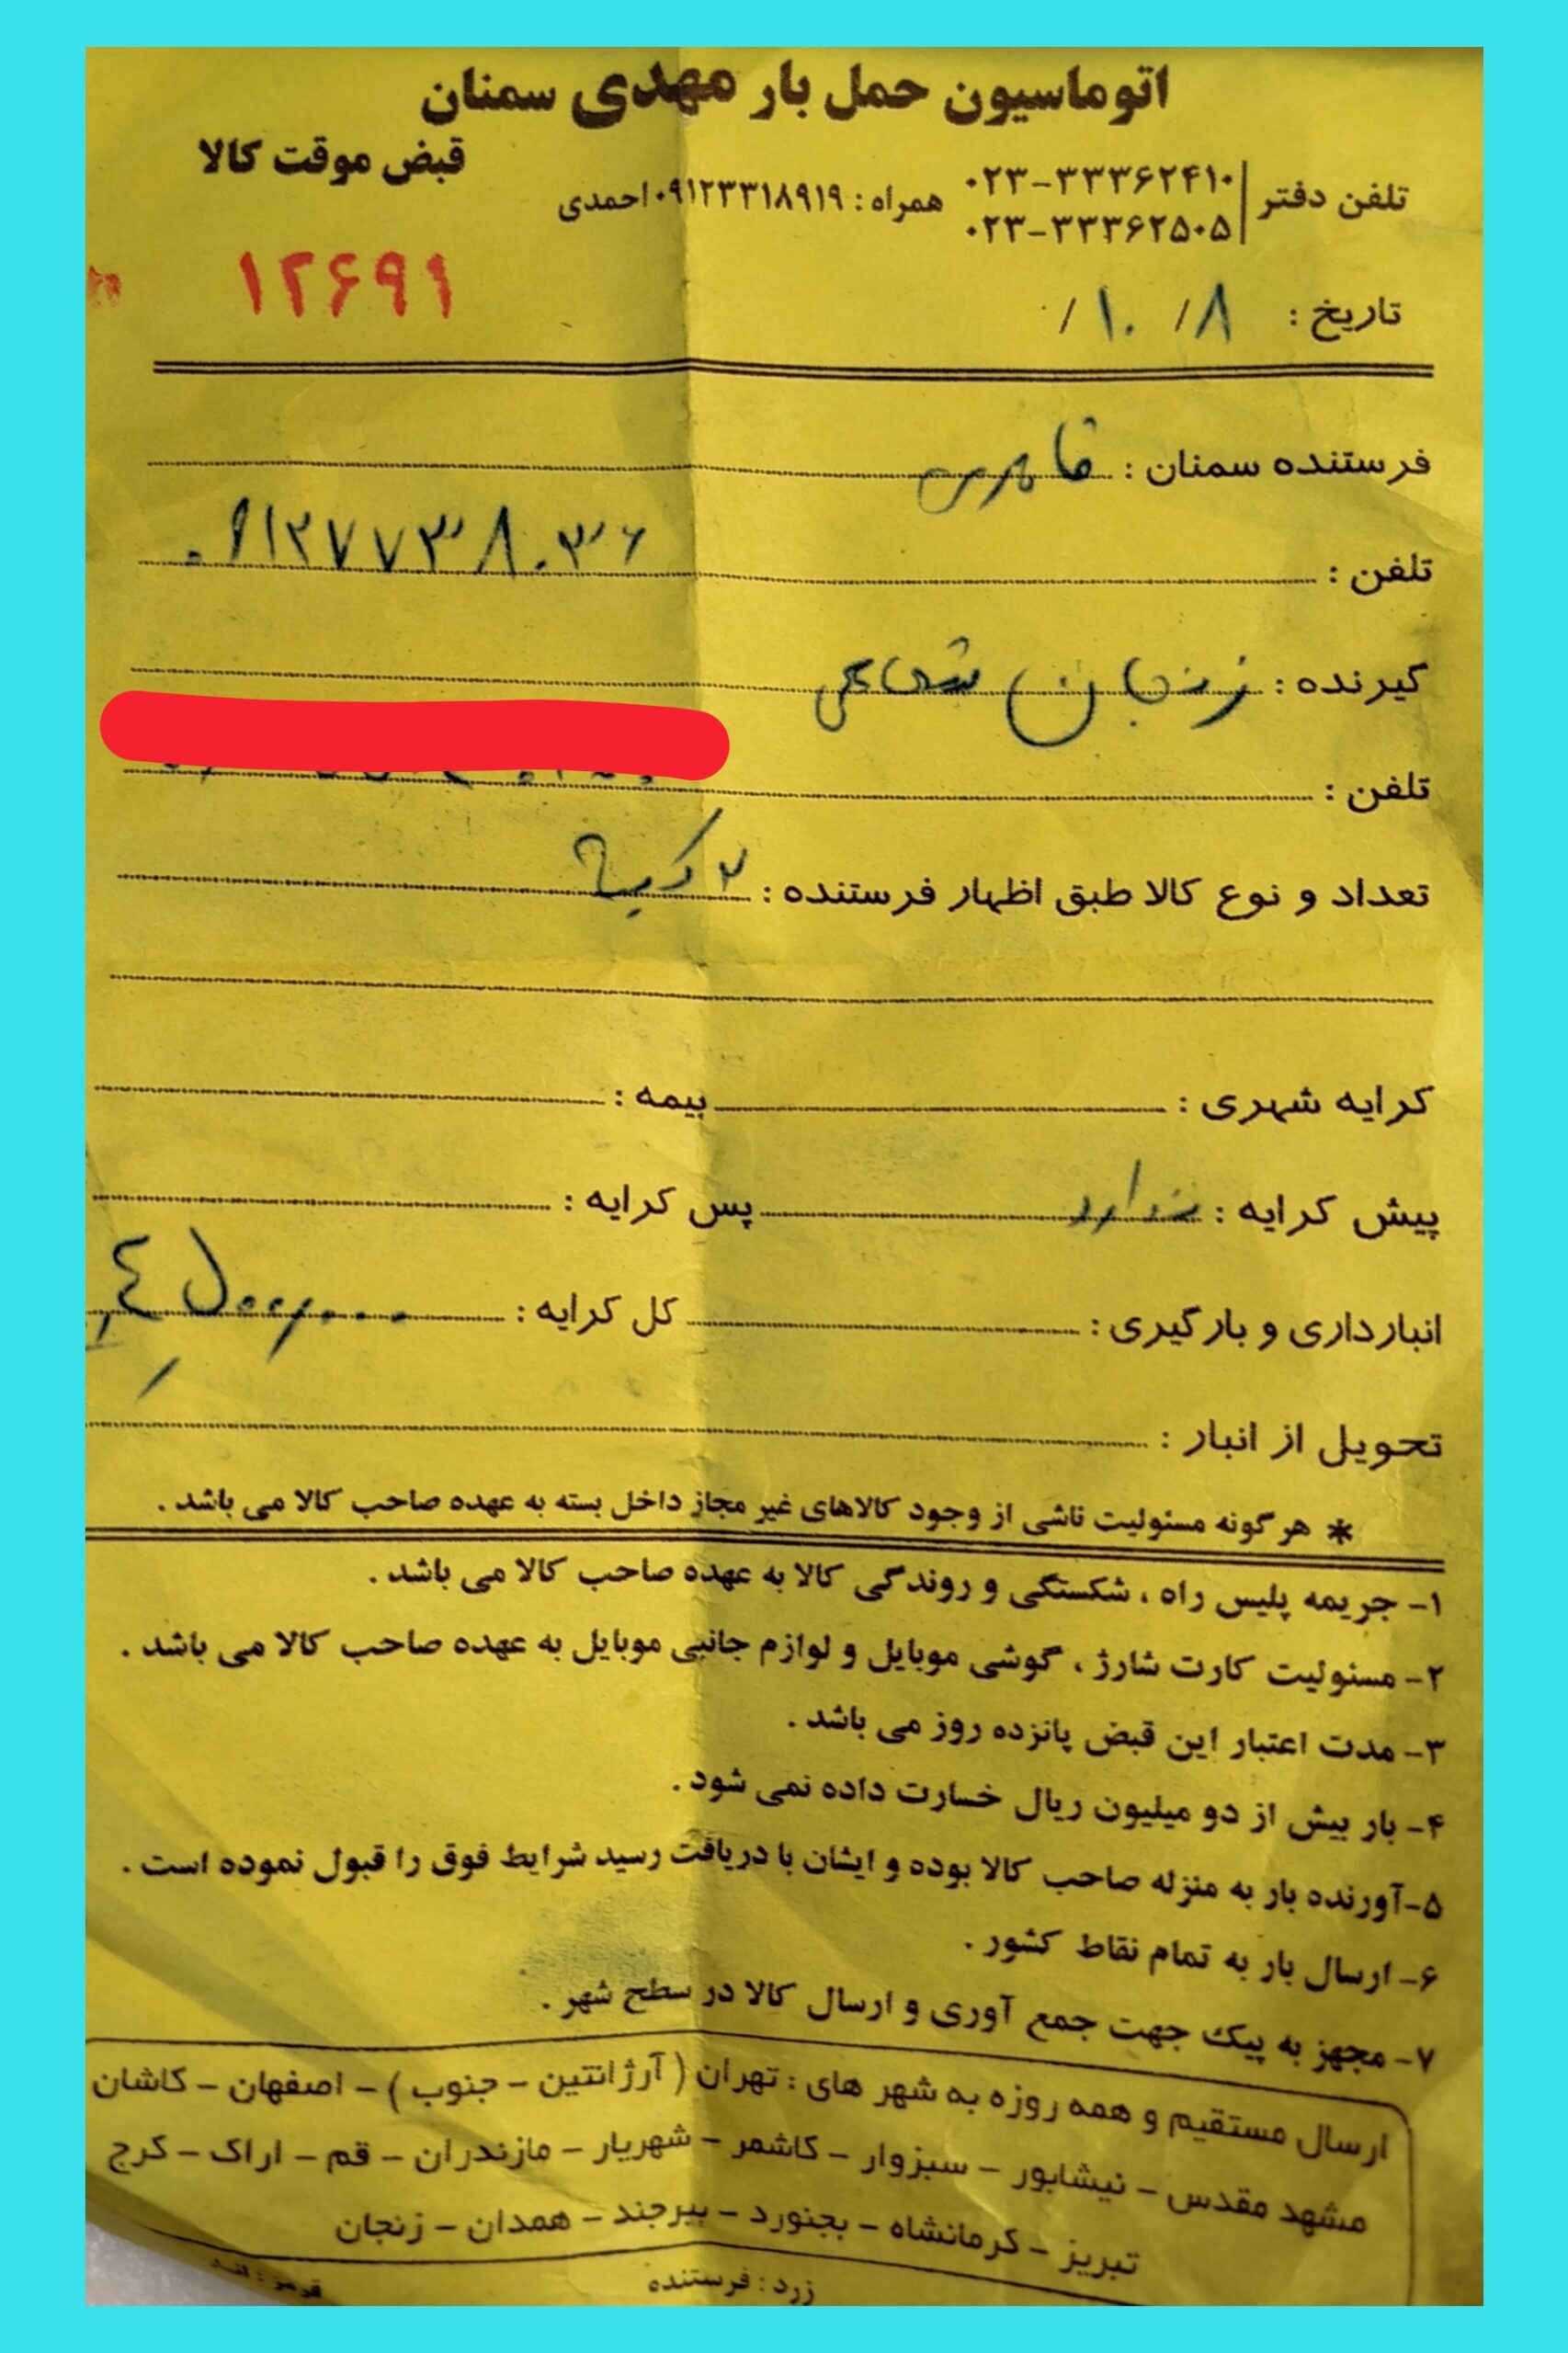 اتوماسیون حمل بار مهدی سمنان
قبض موقت کالا
تلفن دفتر ۰۲۳-۳۳۳۶۲۴۱۰ همراه : ۰۹۱۲۳۳۱۸۹۱۹ احمدی
۰۲۳-۳۳۳۶۲۵۰۵
۱۲۶۹۱
تاریخ : ۸/ ۱۰/
فرستنده سمنان :
تلفن : ۰۹۱۲۷۷۳۸۰۳۶
گیرنده : زنجان
تلفن :
تعداد و نوع کالا طبق اظهار فرستنده : ۲
کرایه شهری : بیمه :
پیش کرایه : ندارد پس کرایه :
انبارداری و بارگیری : کل کرایه :
تحویل از انبار :
* هر گونه مسئولیت ناشی از وجود کالاهای غیر مجاز داخل بسته به عهده صاحب کالا می باشد .
۱- جریمه پلیس راه ، شکستگی و روندگی کالا به عهده صاحب کالا می باشد .
۲- مسئولیت کارت شارژ ، گوشی موبایل و لوازم جانبی موبایل به عهده صاحب کالا می باشد .
۳- مدت اعتبار این قبض پانزده روز می باشد .
۴- بار بیش از دو میلیون ریال خسارت داده نمی شود .
۵-آورنده بار به منزله صاحب کالا بوده و ایشان با دریافت رسید شرایط فوق را قبول نموده است .
۶- ارسال بار به تمام نقاط کشور .
۷- مجهز به پیک جهت جمع آوری و ارسال کالا در سطح شهر .
ارسال مستقیم و همه روزه به شهر های : تهران ( آرژانتین - جنوب ) - اصفهان - کاشان
مشهد مقدس - نیشابور - سبزوار - کاشمر - شهریار - مازندران - قم - اراک - کرج
تبریز - کرمانشاه - بجنورد - بیرجند - همدان - زنجان
زرد : فرستنده
قرمز :